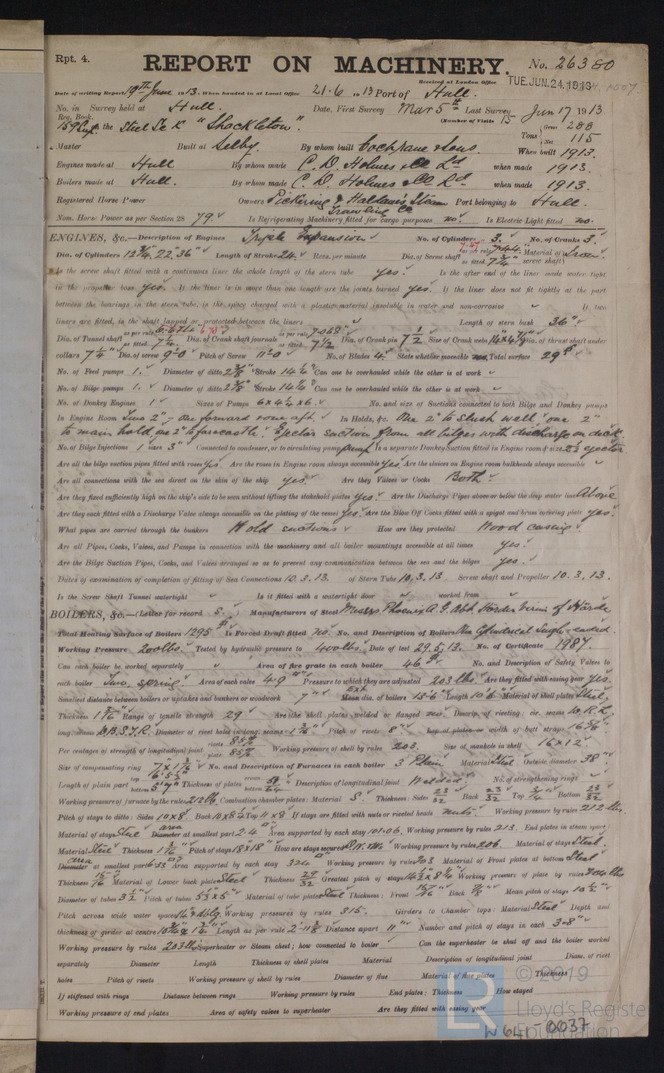 Rpt. 4.
REPORT ON MACHINERY.
No. 26380
Received at London Office
TUE. JUN. 24. 1913
Date of writing Report 19th June 1913. When handed in at Local Office 21-6 1913 Port of Hull.
No. in Survey held at Hull. Date, First Survey Mar 5th Last Survey Jun 17 1913
Reg. Book. (Number of Visits 15
159 Sup. on the Steel Sc K "Shackleton". Tons Gross 288 Net 115
Master Built at Selby. By whom built Cochrane & Sons. When built 1913.
Engines made at Hull By whom made C. D. Holmes & Co Ld when made 1913.
Boilers made at Hull. By whom made C. D. Holmes & Co Ld. when made 1913.
Registered Horse Power Owners Pickering & Haldane's Steam Trawling Co Port belonging to Hull.
Nom. Horse Power as per Section 28 79 Is Refrigerating Machinery fitted for cargo purposes no. Is Electric Light fitted no.
ENGINES, &c.—Description of Engines Triple Expansion No. of Cylinders 3. No. of Cranks 3.
Dia. of Cylinders 12 3/4, 22, 36" Length of Stroke 24. Revs. per minute Dia. of Screw shaft as per rule as fitted 7 3/4" Material of screw shaft Iron
Is the screw shaft fitted with a continuous liner the whole length of the stern tube yes. Is the after end of the liner made water tight
in the propeller boss yes. If the liner is in more than one length are the joints burned yes. If the liner does not fit tightly at the part
between the bearings in the stern tube, is the space charged with a plastic material insoluble in water and non-corrosive If two
liners are fitted, is the shaft lapped or protected between the liners Length of stern bush 36"
Dia. of Tunnel shaft as per rule as fitted Dia. of Crank shaft journals as per rule 7.068" as fitted 7 1/2 Dia. of Crank pin 7 1/2 Size of Crank webs Dia. of thrust shaft under
collars 7 1/4" Dia. of screw 9-0 Pitch of Screw 11-0 No. of Blades 4 State whether moveable no Total surface 29
No. of Feed pumps 1. Diameter of ditto 2 7/8" Stroke 14 1/4" Can one be overhauled while the other is at work
No. of Bilge pumps 1. Diameter of ditto 2 7/8" Stroke 14 1/4" Can one be overhauled while the other is at work
No. of Donkey Engines 1 Sizes of Pumps 6x4 1/2x6. No. and size of Suctions connected to both Bilge and Donkey pumps
In Engine Room Two 2", one forward & one aft. In Holds, &c. One 2" to Slush well, one 2"
to main hold, one 2" to forecastle. Ejector suction from all bilges with discharge on deck
No. of Bilge Injections 1 sizes 3" Connected to condenser, or to circulating pump pump Is a separate Donkey Suction fitted in Engine room & size ejector
Are all the bilge suction pipes fitted with roses Yes. Are the roses in Engine room always accessible Yes Are the sluices on Engine room bulkheads always accessible
Are all connections with the sea direct on the skin of the ship yes. Are they Valves or Cocks Both
Are they fixed sufficiently high on the ship's side to be seen without lifting the stokehold plates Yes Are the Discharge Pipes above or below the deep water line Above
Are they each fitted with a Discharge Valve always accessible on the plating of the vessel Yes Are the Blow Off Cocks fitted with a spigot and brass covering plate yes.
What pipes are carried through the bunkers Hold suctions How are they protected Wood casing
Are all Pipes, Cocks, Valves, and Pumps in connection with the machinery and all boiler mountings accessible at all times yes.
Are the Bilge Suction Pipes, Cocks, and Valves arranged so as to prevent any communication between the sea and the bilges yes.
Dates of examination of completion of fitting of Sea Connections 10.3.13. of Stern Tube 10.3.13. Screw shaft and Propeller 10.3.13.
Is the Screw Shaft Tunnel watertight Is it fitted with a watertight door worked from
BOILERS, &c.—(Letter for record S.) Manufacturers of Steel Messrs Phoenix A G Abt Hörder Verein of Hörde
Total Heating Surface of Boilers 1295 Is Forced Draft fitted no No. and Description of Boilers One Cylindrical Single ended.
Working Pressure 200 lbs. Tested by hydraulic pressure to 400 lbs. Date of test 29.5.13. No. of Certificate 1987.
Can each boiler be worked separately Area of fire grate in each boiler 46 No. and Description of Safety Valves to
each boiler Two spring Area of each valve 4.9 Pressure to which they are adjusted 203 lbs Are they fitted with easing gear Yes.
Smallest distance between boilers or uptakes and bunkers or woodwork 7" Ext Mean dia. of boilers 13'-6" Length 10'-6" Material of shell plates Steel.
Thickness Range of tensile strength 29 Are the shell plates welded or flanged no Descrip. of riveting: cir. seams D.R.L.
long. seams D.B.S.T.R. Diameter of rivet holes in long. seams Pitch of rivets 8" Lap of plates or width of butt straps
Per centages of strength of longitudinal joint rivets plate Working pressure of shell by rules 203. Size of manhole in shell 16x12
Size of compensating ring No. and Description of Furnaces in each boiler 3 Plain Material Steel Outside diameter 38"
Length of plain part top bottom Thickness of plates crown bottom Description of longitudinal joint Welded No. of strengthening rings
Working pressure of furnace by the rules 212 lb. Combustion chamber plates: Material S. Thickness: Sides 23/32 Back 23/32 Top 3/4 Bottom 23/32
Pitch of stays to ditto: Sides 10x8 Back Top 11x8 If stays are fitted with nuts or riveted heads nuts. Working pressure by rules 212 lbs.
Material of stays Steel area Diameter at smallest part 2.4 Area supported by each stay Working pressure by rules 213. End plates in steam space
Material Steel Thickness Pitch of stays 18x18 How are stays secured D.N. & W. Working pressure by rules 206. Material of stays Steel.
area Diameter at smallest part Area supported by each stay 324 Working pressure by rules 203 Material of Front plates at bottom Steel
Thickness 15/16 Material of Lower back plate Steel Thickness 29/32 Greatest pitch of stays Working pressure of plate by rules
Diameter of tubes 3 1/2 Pitch of tubes Material of tube plates Steel Thickness: Front 15/16 Back Mean pitch of stays 10 1/2"
Pitch across wide water spaces Working pressures by rules 315. Girders to Chamber tops: Material Steel Depth and
thickness of girder at centre Length as per rule Distance apart 11" Number and pitch of stays in each 3-8"
Working pressure by rules 203 lbs Superheater or Steam chest; how connected to boiler Can the superheater be shut off and the boiler worked
separately Diameter Length Thickness of shell plates Material Description of longitudinal joint Diam. of rivet
holes Pitch of rivets Working pressure of shell by rules Diameter of flue Material of flue plates Thickness
If stiffened with rings Distance between rings Working pressure by rules End plates: Thickness How stayed
Working pressure of end plates Area of safety valves to superheater Are they fitted with easing gear
© 2019
Lloyd's Register
Foundation
W641-0037